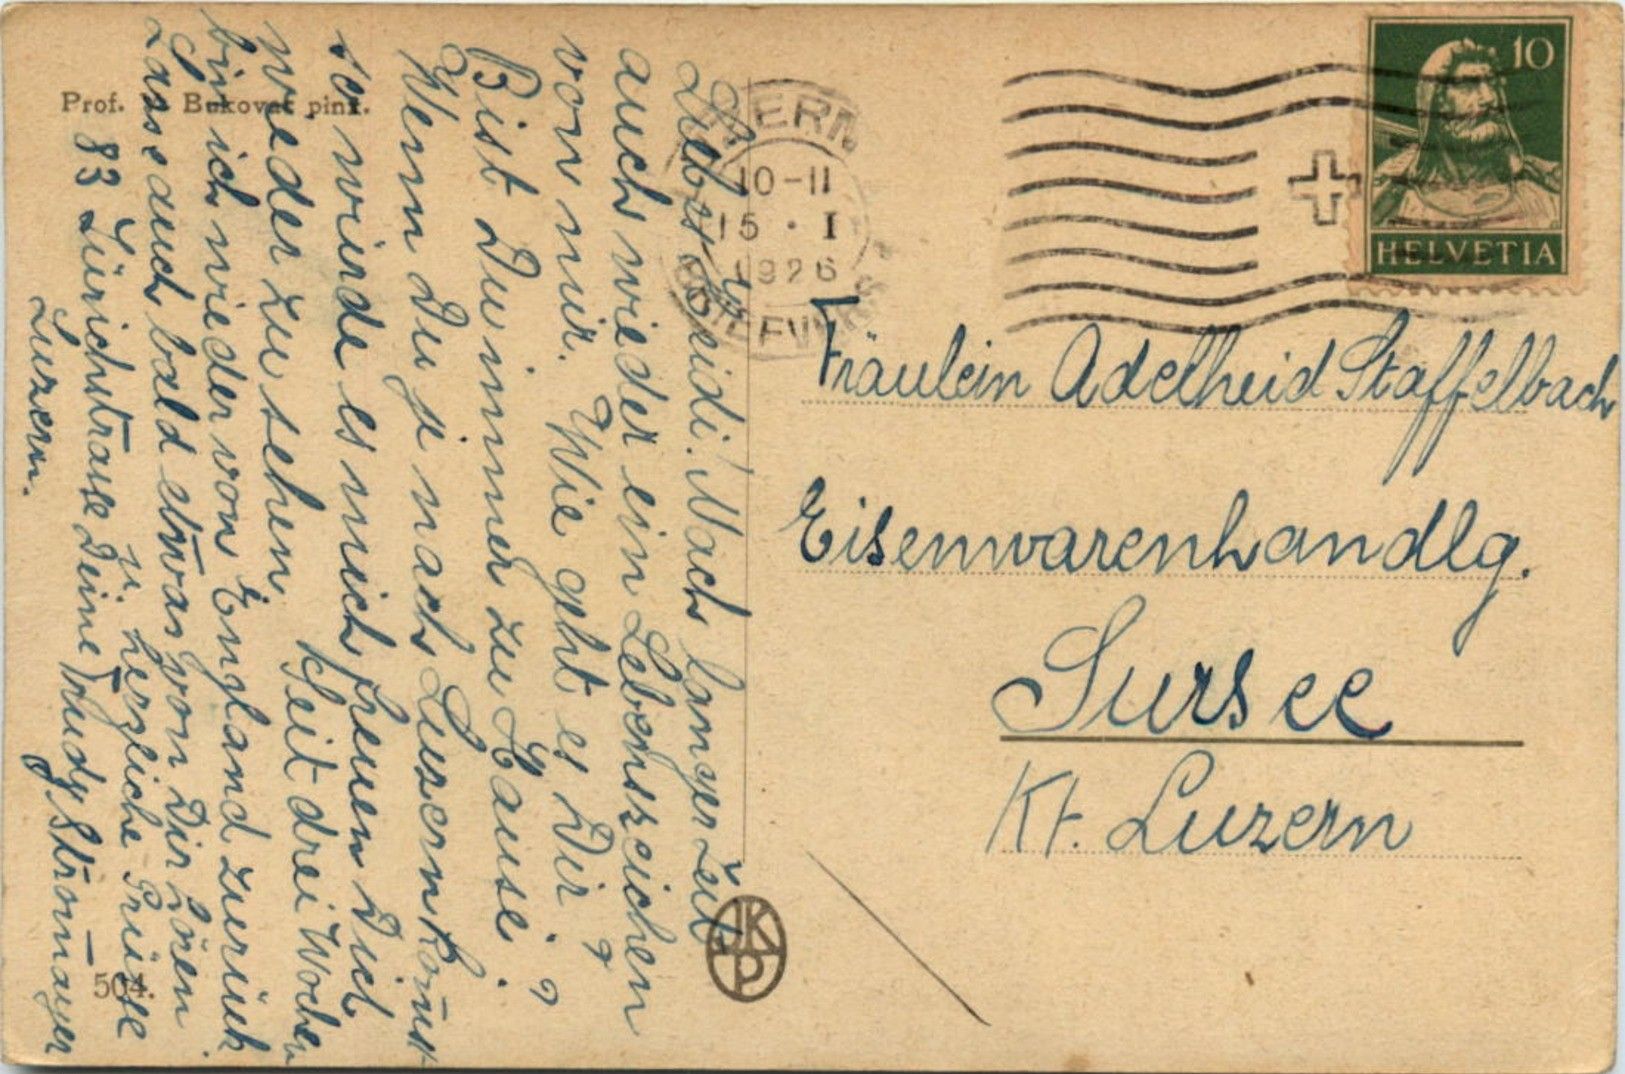 Prof. Bukovac pinx.
Liebes Heidi! Nach langer Zeit
auch wieder ein Lebenszeichen
von mir. Wie geht es Dir?
Bist Du immer zu Hause?
Wenn Du je nach Luzern kommst
so würde es mich freuen Dich
wieder zu sehen. Seit drei Wochen
bin ich wieder von England zurück
Lasse auch bald etwas von Dir hören
u. herzliche Grüsse
83 Zürichstrasse Deine Trudy Stromayer
Luzern.
504.
JKP
LUZERN
10-11
15 · I
1926
BRIEFVERS.
10
HELVETIA
Fräulein Adelheid Staffelbach
Eisenwarenhandlg.
Sursee
Kt. Luzern